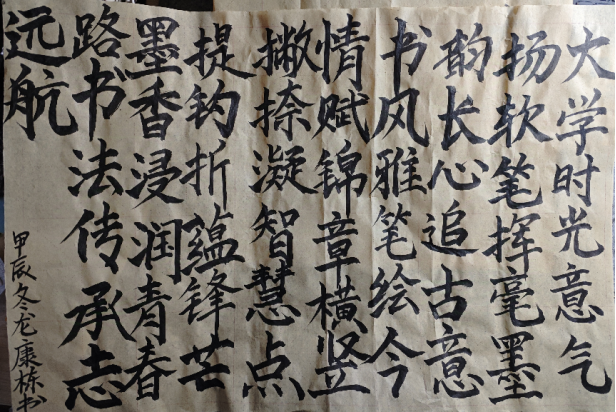 大学时光意气
扬软笔挥毫墨
韵长心追古意
书风雅笔绘今
情赋锦章横竖
撇捺凝智慧点
提钩折蕴锋芒
墨香浸润青春
路书法传承志
远航
甲辰冬龙康栋书